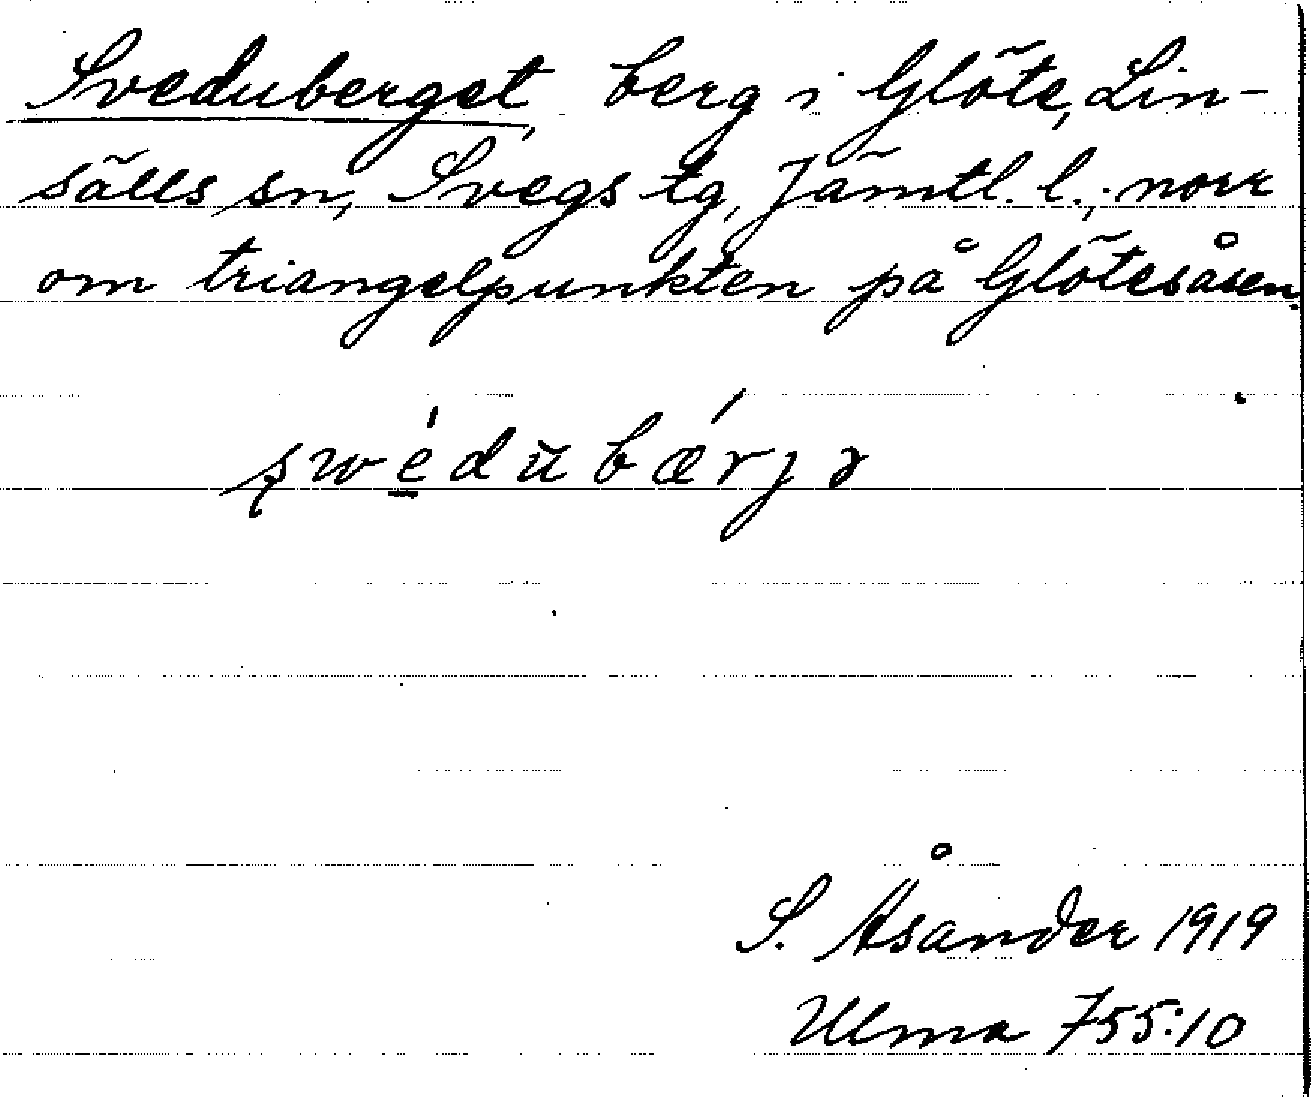 Sveduberget, berg i Glöte, Lin-
sälls sn, Svegs tg, Jämtl. l.; norr
om triangelpunkten på Glötesåsen.
swédŭbǽrjə
S. Åsander 1919
Ulma 755:10